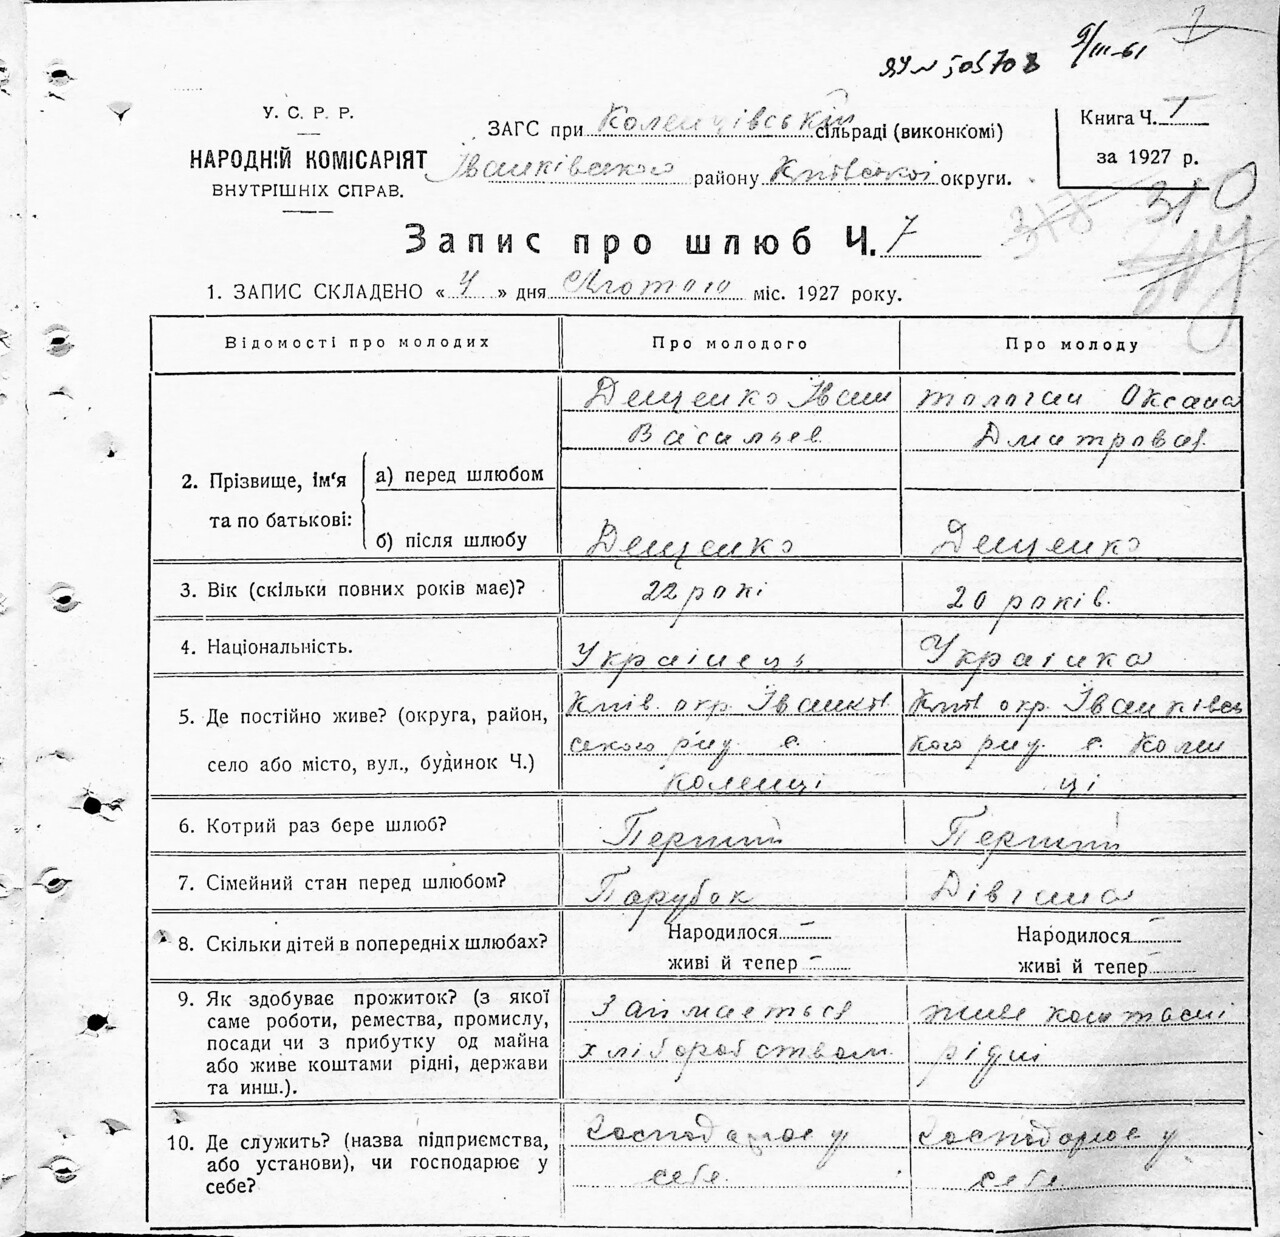 ЯУ № 505708 9/III-61
У. С. Р. Р.
НАРОДНІЙ КОМІСАРІЯТ
ВНУТРІШНІХ СПРАВ.
ЗАГС при Коленцівській сільраді (виконкомі)
Іванківського району Київської округи.
Книга Ч. I
за 1927 р.
318 310
Запис про шлюб Ч. 7
1. ЗАПИС СКЛАДЕНО « 4 » дня Лютого міс. 1927 року.
Відомості про молодих Про молодого Про молоду
2. Прізвище, ім'я та по батькові:
а) перед шлюбом
Дещенко Іван
Васильев
Оксана
Дмитрова
б) після шлюбу Дещенко Дещенко
3. Вік (скільки повних років має)? 22 рокі 20 років.
4. Національність. Українець Українка
5. Де постійно живе? (округа, район,
село або місто, вул., будинок Ч.)
Київ. окр. Іванків
ського р-ну с.
Коленці
Київ окр. Іванківсь
кого р-ну с. Колен
ці
6. Котрий раз бере шлюб? Перший Перший
7. Сімейний стан перед шлюбом? Парубок Дівчина
8. Скільки дітей в попередніх шлюбах?
Народилося –
живі й тепер –
Народилося –
живі й тепер –
9. Як здобуває прожиток? (з якої
саме роботи, ремества, промислу,
посади чи з прибутку од майна
або живе коштами рідні, держави
та инш.).
Займається
хліборобством
живе коштами
рідні
10. Де служить? (назва підприємства,
або установи), чи господарює у
себе?
Господарює у
себе
Господарює у
себе